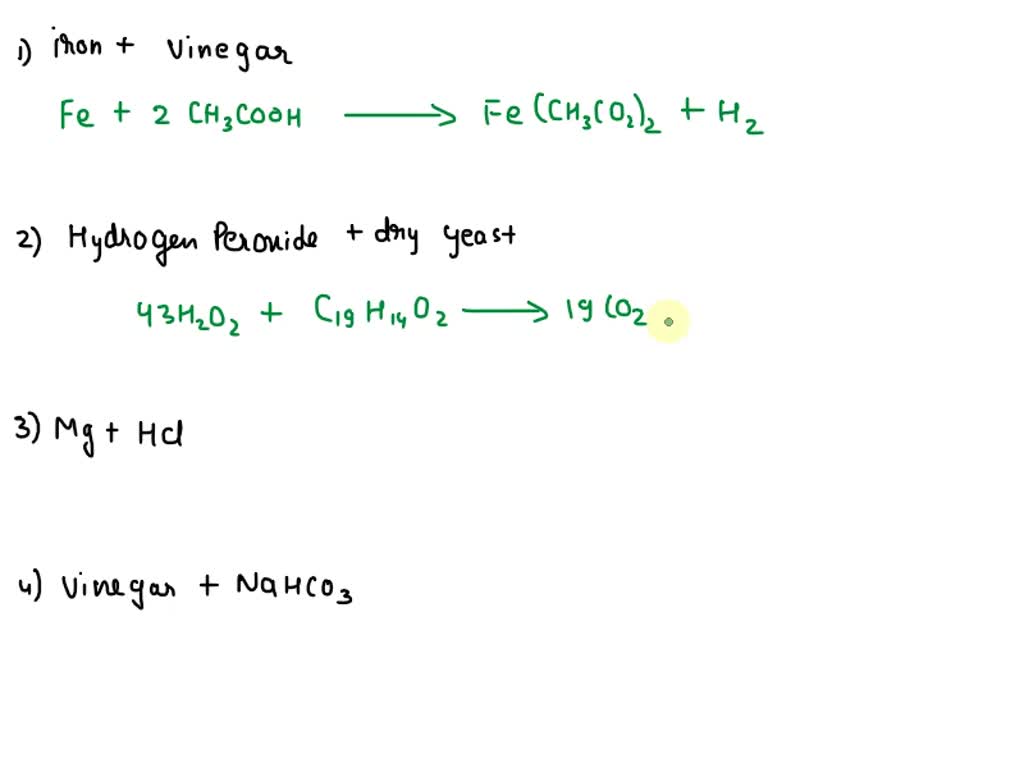 1) iron + Vinegar
Fe + 2 CH₃COOH ⟶ Fe(CH₃CO₂)₂ + H₂
2) Hydrogen Peroxide + dry yeast
43H₂O₂ + C₁₉H₁₄O₂ ⟶ 19 CO₂
3) Mg + HCl
4) Vinegar + NaHCO₃